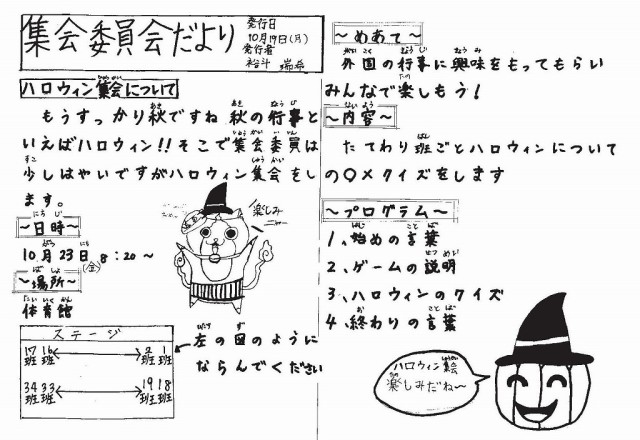 集会委員会だより
発行日
10月19日(月)
発行者
裕斗 瑞希
ハロウィン集会について
もうすっかり秋ですね 秋の行事と
いえばハロウィン!!そこで集会委員は
少しはやいですがハロウィン集会をし
ます。
～日時～
10月23日(金) 8:20～
～場所～
体育館
ステージ
17班 16班 2班 1班
34班 33班 19班 18班
左の図のように
ならんでください
楽しみ
ニャー
～めあて～
外国の行事に興味をもってもらい
みんなで楽しもう!
～内容～
たてわり班ごとハロウィンについて
の〇×クイズをします
～プログラム～
1、始めの言葉
2、ゲームの説明
3、ハロウィンのクイズ
4、終わりの言葉
ハロウィン集会
楽しみだね～